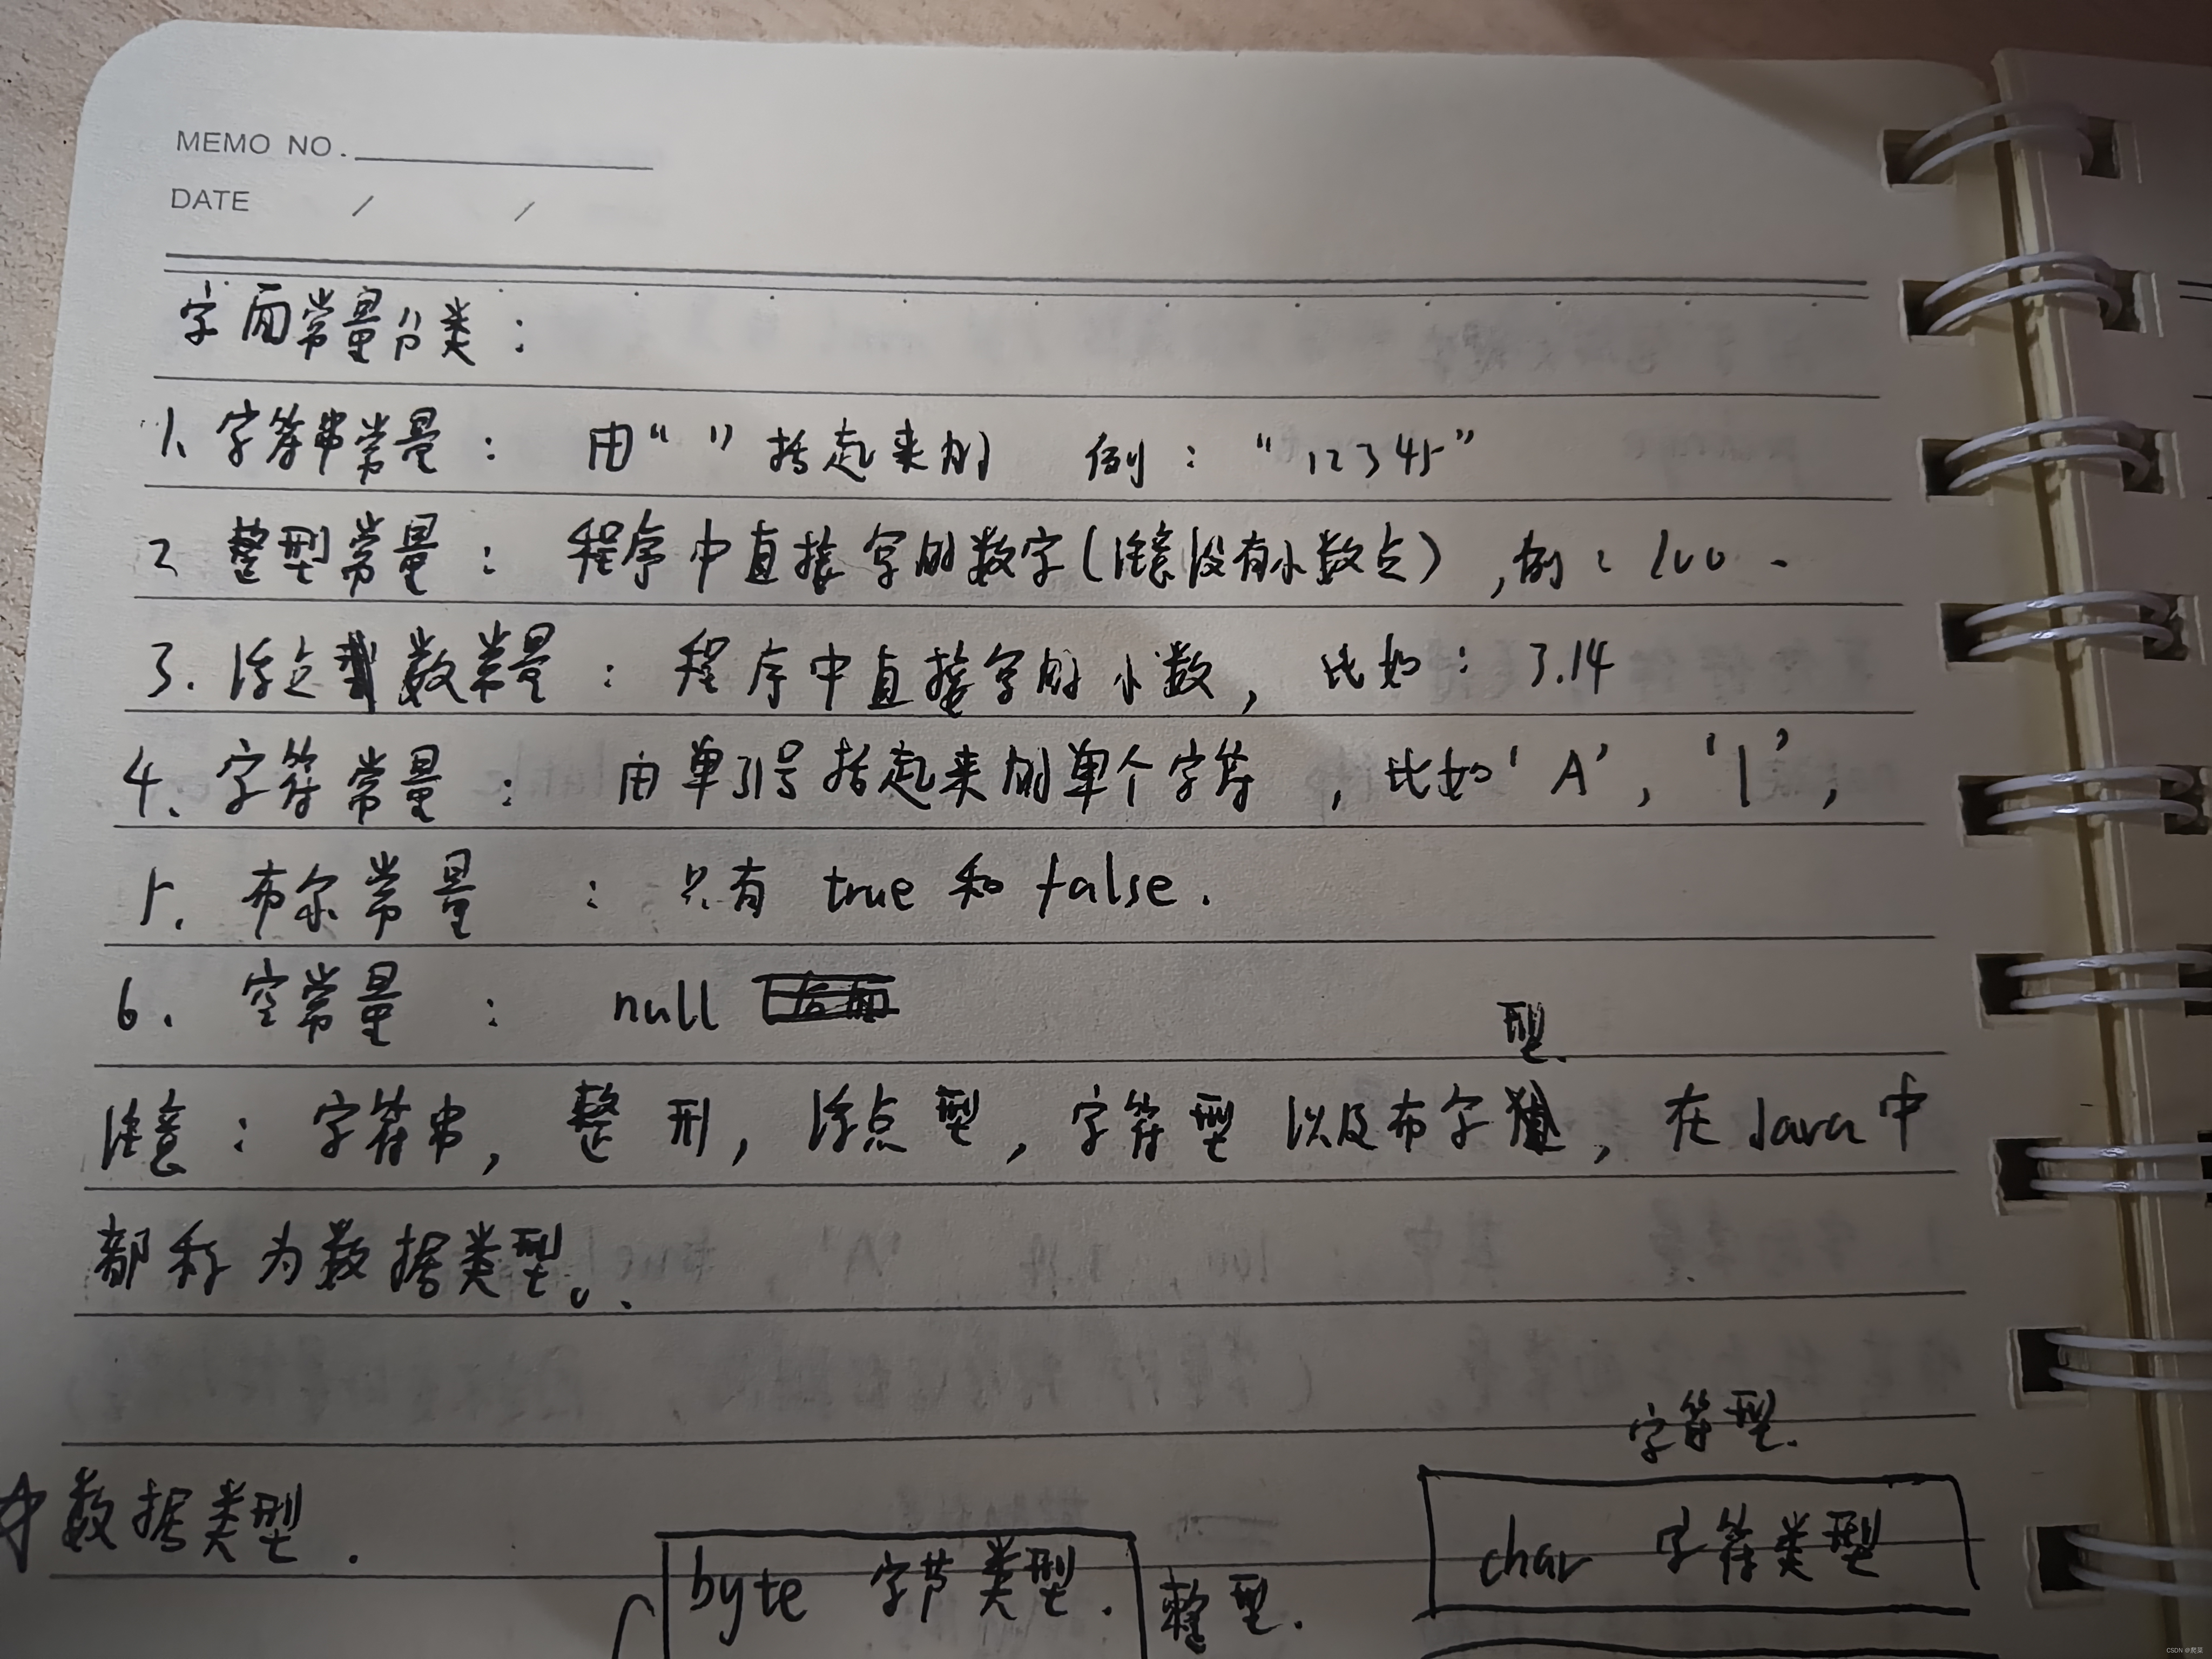 MEMO NO.
DATE / /
字面常量分类：
1、字符串常量： 由“ ”括起来的 例：“12345”
2 整型常量： 程序中直接写的数字(注意没有小数点)，例：100、
3. 浮点数常量： 程序中直接写的小数， 比如：3.14
4、字符常量： 由单引号括起来的单个字符，比如‘A’，‘1’，
5. 布尔常量： 只有 true 和 false.
6. 空常量： null
型.
注意：字符串，整形，浮点型，字符型以及布字，在Java中
都称为数据类型。.
字符型.
数据类型.
char 字符类型
byte 字节类型. 整型.
CSDN @爬菜